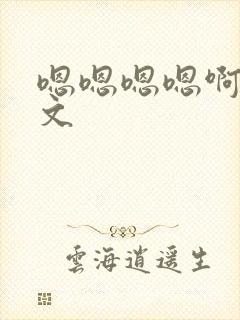 嗯嗯嗯嗯啊
文
雲海逍遥生